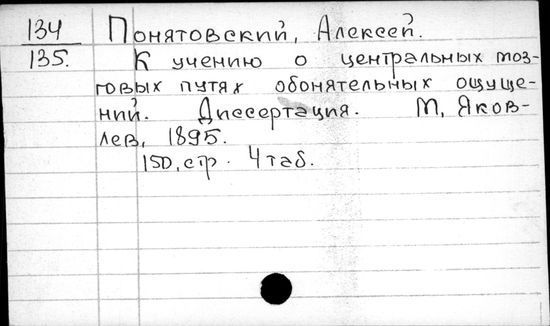 134 Понятовский, Алексей.
135. К учению о центральных моз-
говых путях обонятельных ощуще-
ний. Диссертация. М, Яков-
лев, 1895.
150, стр. 4 таб.